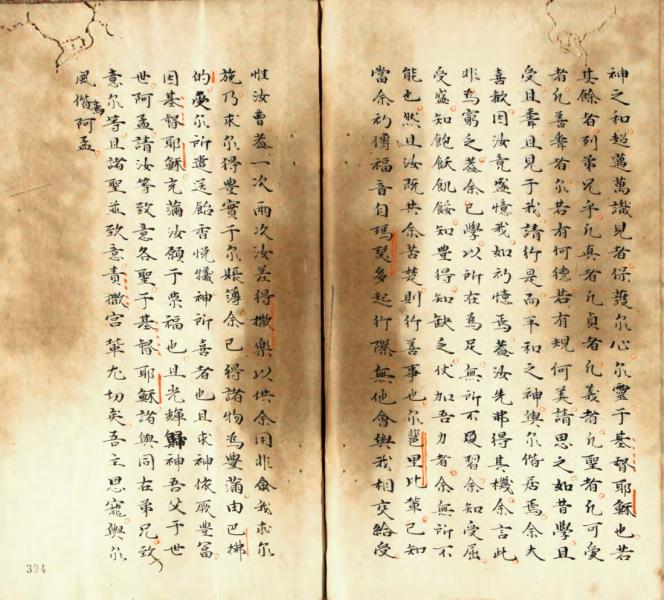 神之和超邁萬識見者保護尔心尔靈于基督耶穌也若
其餘者列弟兄乎凡真者凡貞者凡義者凡聖者凡可愛
者凡善彝者尔若有何德若有規何美請思之如昔學且
受且聽且見于我請行是而平和之神與尔偕居焉余大
喜歡因汝竟盛憶我如礿憶焉葢汝先弗得其機余言此
非為窮乏葢余已學以所在為足無所不習余知受屈
受盛知飽飫飢餒知豐得知缺乏伏加吾力者余無所不
能也然且汝既共余苦楚則行善事也尔里比軰已知
當余礿傳福音自瑪多起行際無他會與我相交給受
惟汝曹葢一次兩次汝差得撒樂以供余用非余求尔
施乃求尔得豐實于尔賬簿余已得諸物為豐滿由巴拂
的受尔所遣送飴香悅犧神所喜者也且求神依厥豐冨
因基督耶穌充滿汝願于榮福也且光輝歸神吾父于世
世阿孟請汝等致意各聖于基督耶穌諸與同在弟兄致
意尔等且諸聖並致意責撒宫軰尤切矣吾主恩寵與尔
風偕焉阿孟
334